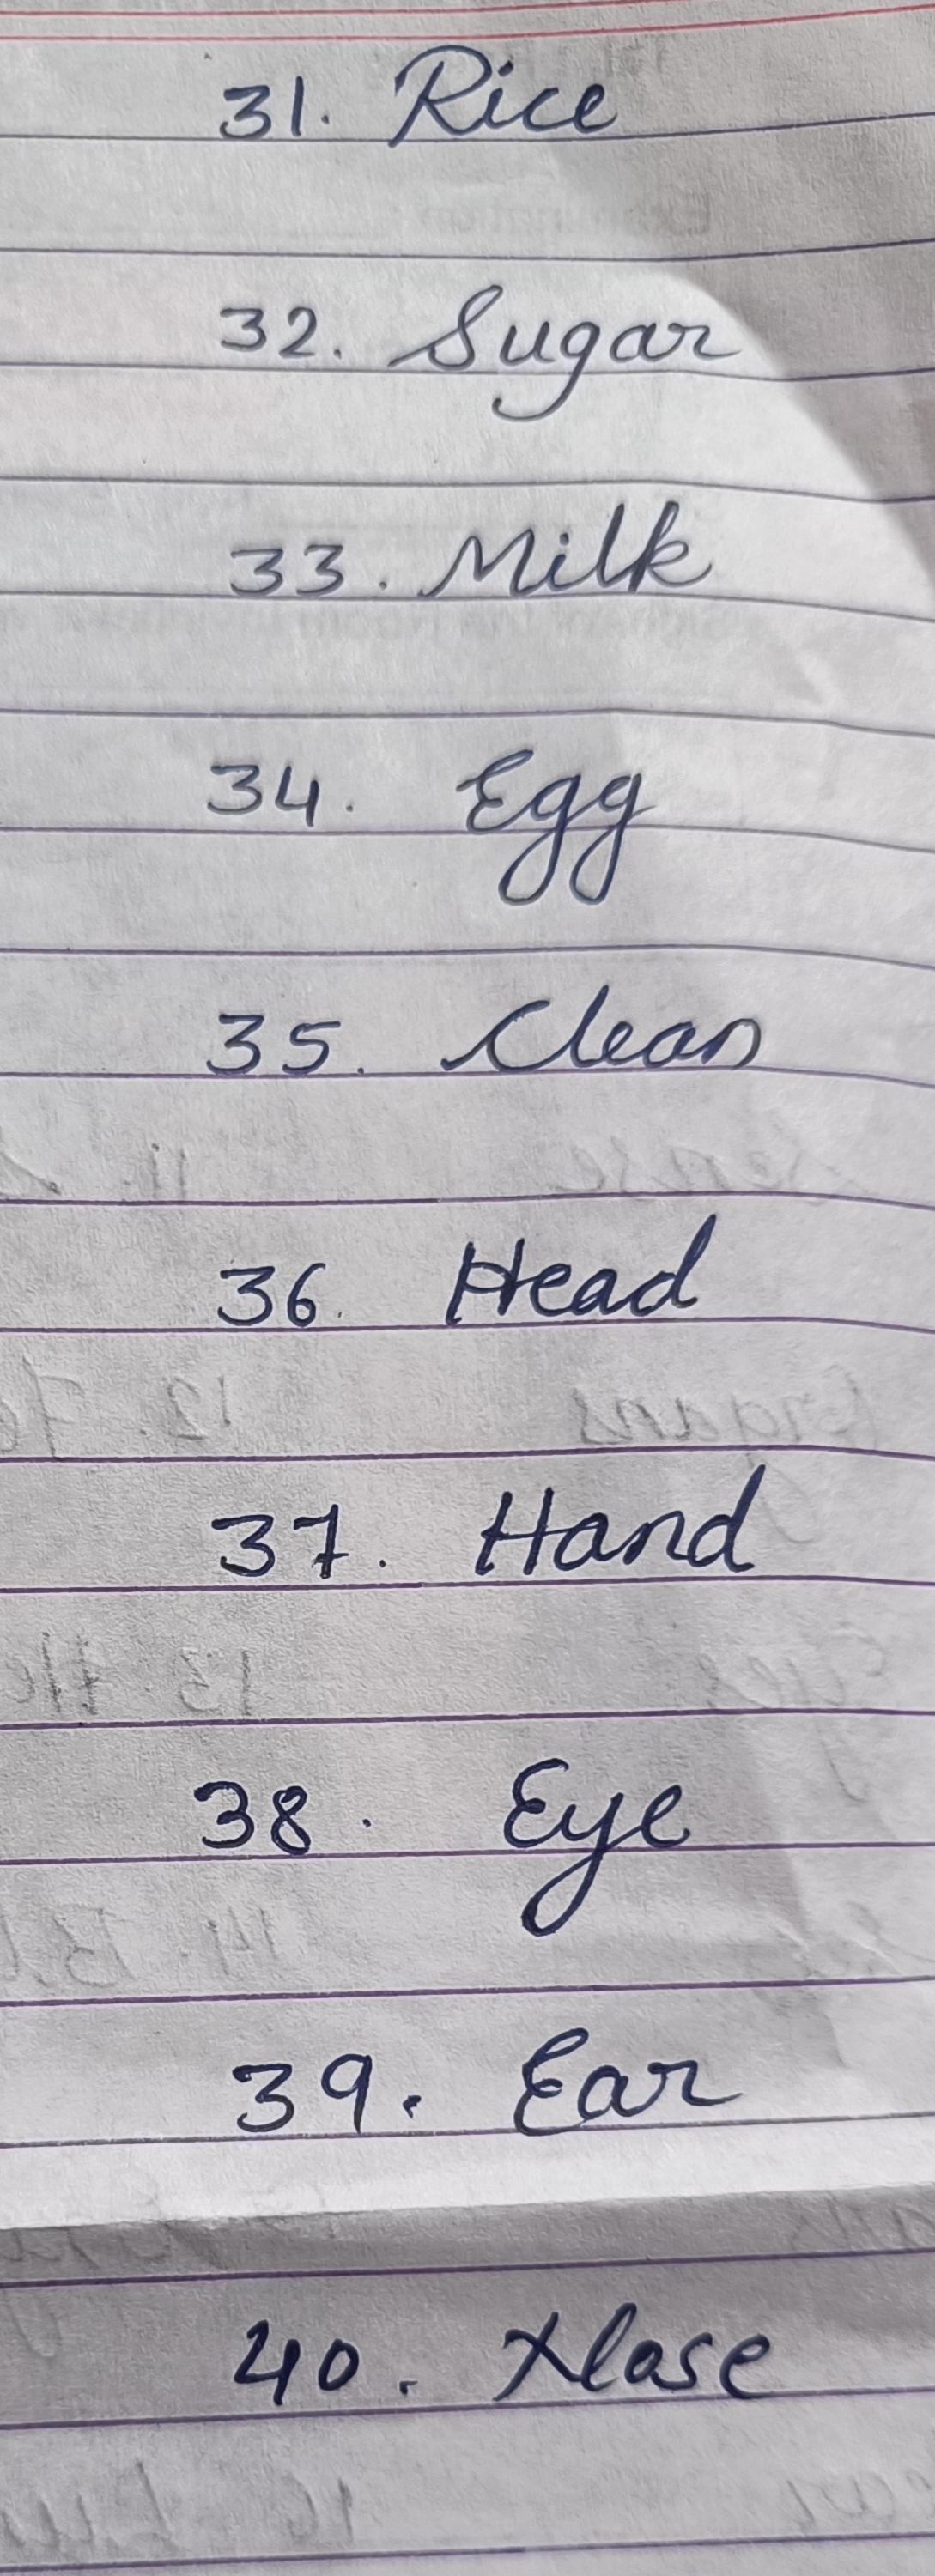 31. Rice
32. Sugar
33. Milk
34. Egg
35. Clean
36. Head
37. Hand
38. Eye
39. Ear
40. Nose